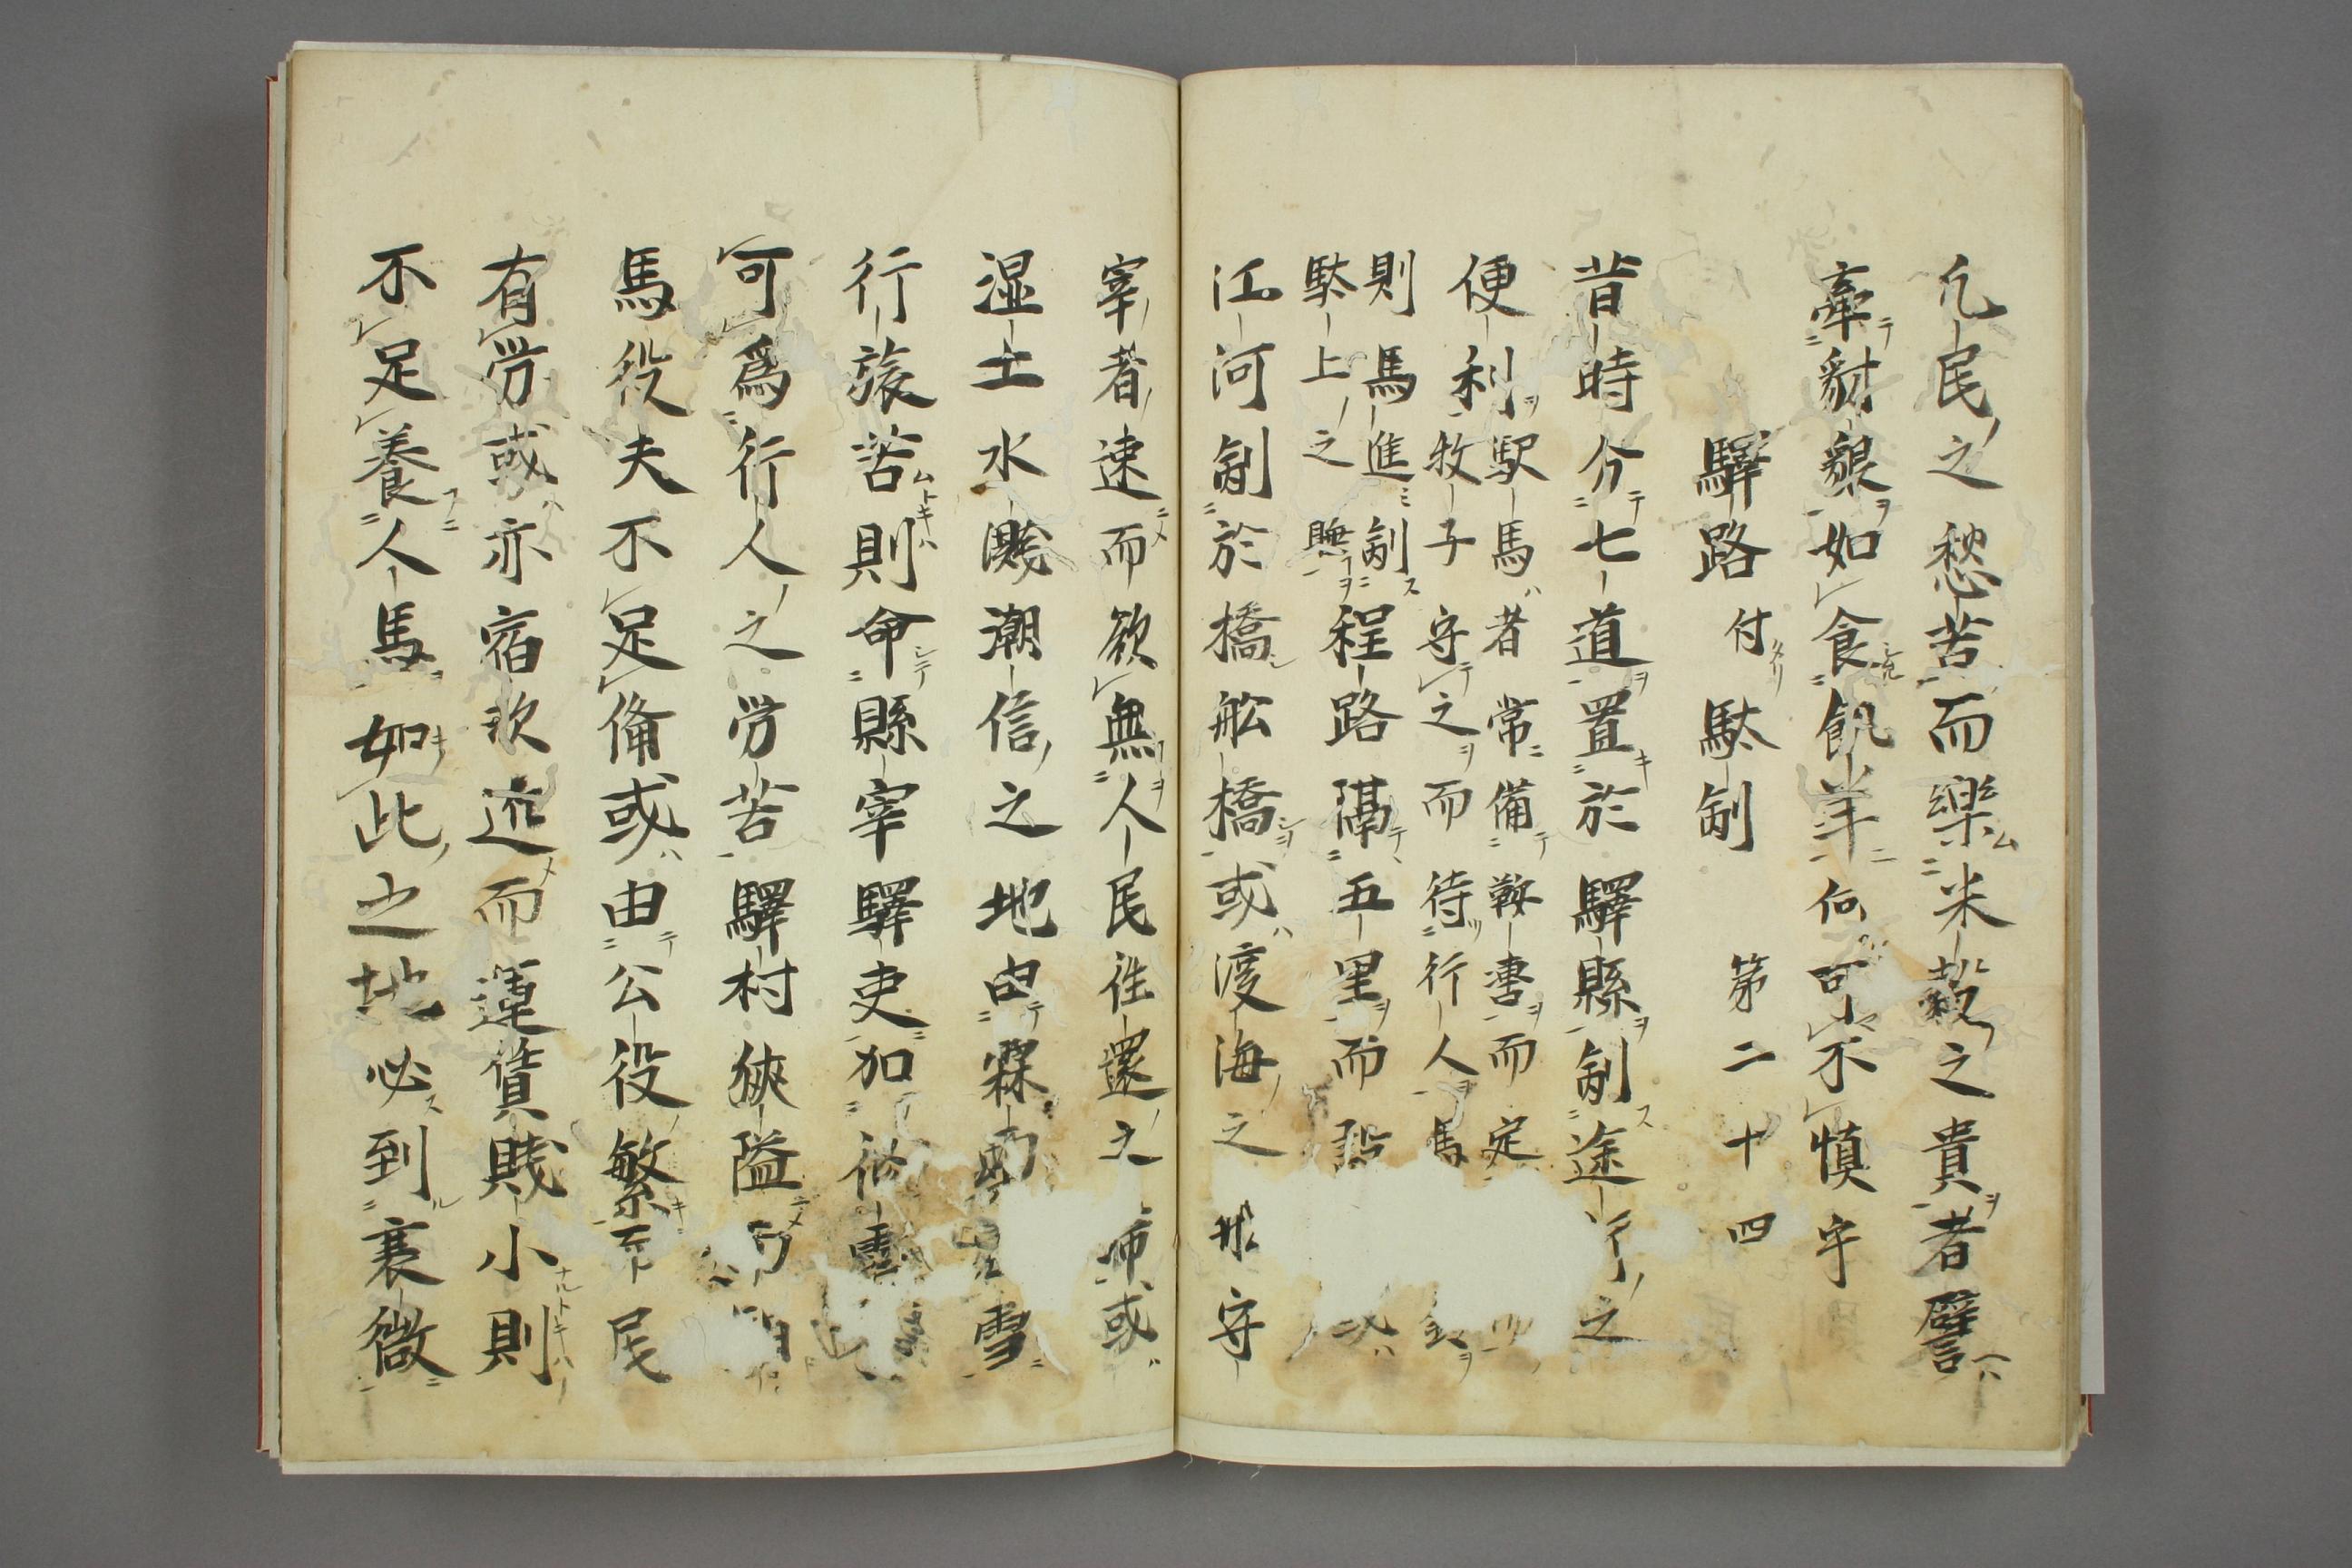 凢民之愁苦而樂米穀之貴者譬
牽豺狼如食飢羊何可不慎乎
驛路付駄剳 第二十四
昔時分七道置於驛縣剳途行之
便利駅馬者常備鞍轡而定
牧子守之而待行人馬
則馬進剳程路隔五里而
駄上之
江河剳於橋舩橋或渡海之 守
宰者速而欲無人民往還之 或
湿土水濺潮信之地由霖雨 雪
行旅苦則命縣宰驛吏加
可為行人之労苦驛村狹隘
馬役夫不足俻或由公役繁 民
有労或亦宿次 而運賃賎小則
不足養人馬如此之地必到衰微